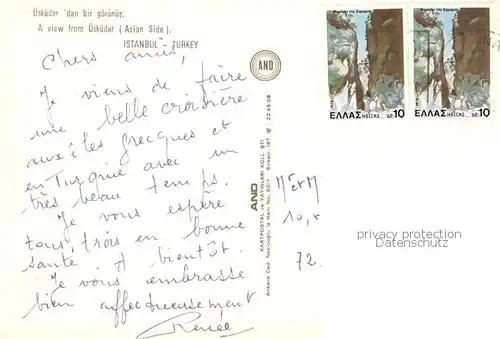 Üsküdar 'dan bir görünüş.
A view from Üsküdar (Asian Side).
ISTANBUL - TURKEY
AND
Chers amis,
Je viens de faire
une belle croisière
aux îles grecques et
en Turquie avec un
très beau temps.
Je vous espère
tous trois en bonne
santé. A bientôt.
Je vous embrasse
bien affectueusement
Renée
AND
KARTPOSTAL ve YAYINLARI KOLL. ŞTİ.
Ankara Cad. Sirkeci-IST. 22 45 08
ΕΛΛΑΣ HELLAS ΔΡ. 10
ΕΛΛΑΣ HELLAS ΔΡ. 10
M et M
72.
privacy protection
Datenschutz